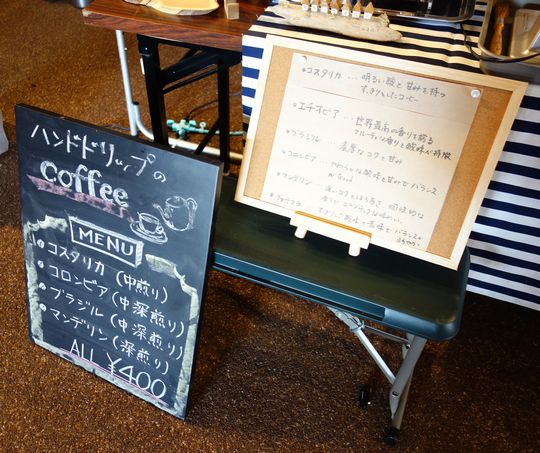 ハンドドリップの
Coffee
MENU
コスタリカ (中煎り)
コロンビア (中深煎り)
ブラジル (中深煎り)
マンデリン (深煎り)
ALL ¥400
コスタリカ … 明るい酸と甘みを持つ
すっきりしたコーヒー
エチオピア … 世界最高の香りを誇る
フルーティな香りと酸味が特徴
ブラジル 濃厚なコクと甘み
コロンビア … やわらかな酸味と甘みで バランス
Good
マンデリン … 深いコクとほろ苦さ 個性的な
グァテマラ